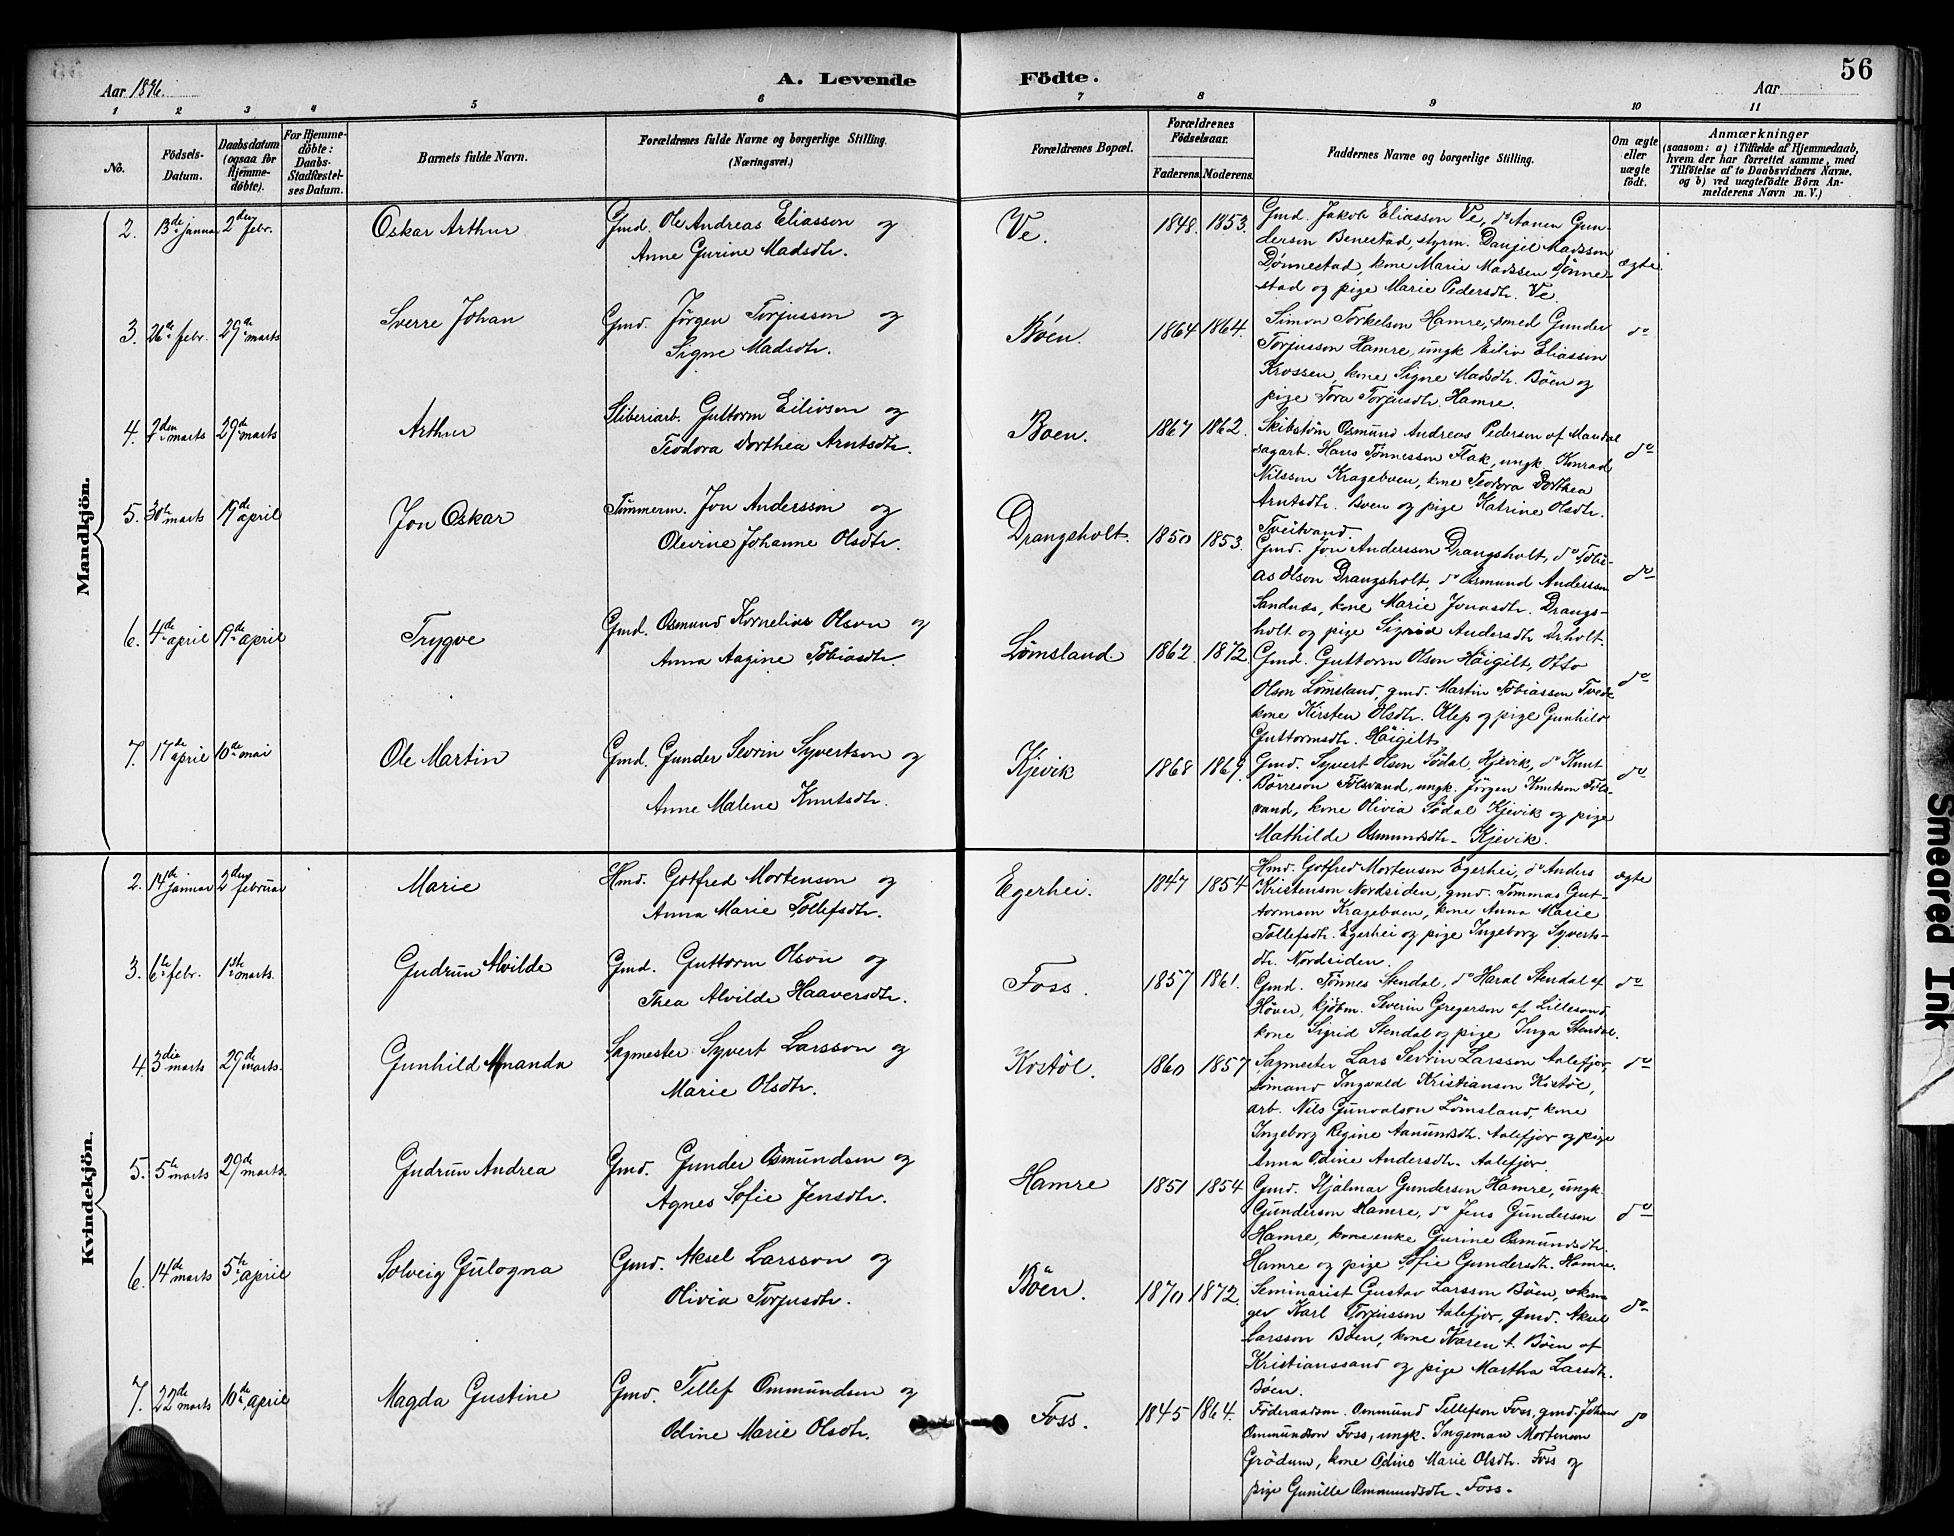 56
Aar 1896.
A. Levende Födte.
Aar
1 2 3 4 5 6 7 8 9 10 11
No.
Födsels-Datum.
Daabsdatum (ogsaa for Hjemme-döbte).
For Hjemme-döbte: Daabs-Stadfæstel-ses Datum.
Barnets fulde Navn.
Forældrenes fulde Navne og borgerlige Stilling. (Næringsvei.)
Forældrenes Bopæl.
Forældrenes Födselsaar.
Faderens. Moderens.
Faddernes Navne og borgerlige Stilling.
Om ægte eller uægte födt.
Anmærkninger
(saasom: a) i Tilfælde af Hjemmedaab,
hvem der har forrettet samme, med
Tilföielse af to Daabsvidners Navne,
og b) ved uægtefödte Börn An-
melderens Navn m. V.)
Mandkjön.
2. 13de januar 2den febr. Oskar Arthur
Gmd. Ole Andreas Eliasson og
Anne Gurine Madsdtr.
Ve. 1848. 1853.
Gmd. Jakob Eliasson Ve, do Aanen Gun-
derson Benestad, styrm. Danjel Madsson
Dønnestad, kone Marie Madssen Dønne-
stad og pige Marie Pedersdtr. Ve.
ægte.
3. 26de febr. 29de marts Sverre Johan
Gmd. Jørgen Torjusson og
Signe Madsdtr.
Böen. 1864 1864.
Simon Torkelson Hamre, smed Gunder
Torjusson Hamre, ungk. Eiliv Eliasson
Krossen, kone Signe Madsdtr. Böen og
pige Tora Torjusdtr. Hamre.
do
4. 2den marts 29de marts Arthur
Sliberiarb. Guttorm Eilivson og
Teodora Dorthea Arntsdtr.
Boen. 1867 1862.
Skibstøm. Osmund Andreas Pedersen af Mandal
sagarb. Hans Tønnesson Flak, ungk. Konrad
Nilsson Krageboen, kone Teodora Dorthea
Arntsdtr. Boen og pige Katrine Olsdtr.
Tveitvand.
do
5. 30te marts 19de april Jon Oskar
Tømmerm. Jon Andersson og
Olevine Johanne Olsdtr.
Drangsholt. 1850 1853.
Gmd. Jon Andersson Drangsholt, do Tobi-
as Olson Drangsholt, do Osmund Andersson
Sandnes, kone Marie Jonasdtr. Drangs-
holt og pige Sigrid Andersdtr Dr.holt.
do
6. 4de april 19de april Trygve
Gmd. Osmund Kornelius Olson og
Anna Aagine Tobiasdtr.
Lømsland. 1862. 1872.
Gmd. Guttorm Olson Höigilt, Otto
Olson Lømsland, gmd. Martin Tobiasson Tveit
kone Kirsten Olsdtr. Klep og pige Gunhild
Guttormsdtr. Höigilt
do
7. 17de april 10de mai Ole Martin
Gmd. Gunder Sevrin Syvertson og
Anne Malene Knutsdtr.
Kjevik 1868 1869.
Gmd. Syvert Olson Sødal, Kjevik, do Knut
Børreson Følsvand, ungk. Jørgen Knutson Føls-
vand, kone Olivia Sødal Kjevik og pige
Mathilde Osmundsdtr. Kjevik.
do
Kvindekjön.
2. 14de januar 2den februar Marie
Hmd. Gotfred Mortenson og
Anna Marie Tollefsdtr.
Egerhei. 1847 1854
Hmd. Gotfred Mortenson Egerhei, do Anders
Kristenson Nordsiden, gmd. Tommas Gut-
tormson Krageboen, kone Anna Marie
Tollefsdtr. Egerhei og pige Ingeborg Syverts-
dtr. Nordsiden.
ægte
3. 6te febr. 1ste marts. Gudrun Alvilde
Gmd. Guttorm Olson og
Thea Alvilde Haaversdtr.
Foss. 1857 1861.
Gmd. Tønnes Stendal, do Haral Stendal af
Høver, kjøbm. Severin Gregerson af Lillesand
kone Sigrid Stendal og pige Inga Stendal.
do
4. 3die marts 29de marts. Gunhild Amanda
Sagmester Syvert Larsson og
Marie Olsdtr.
Kostöl. 1860 1857
Sagmester Lars Sevrin Larsson Aalefjær,
sömand Ingvald Kristianson Kostöl,
arb. Nils Gunvalson Lømsland, kone
Ingeborg Regine Aanundsdtr. Aalefjær og pige
Anna Odine Andersdtr. Aalefjær.
do
5. 5te marts 29de marts. Gudrun Andrea
Gmd. Gunder Osmundsen og
Agnes Sofie Jensdtr.
Hamre 1851 1854
Gmd. Hjalmar Gunderson Hamre, ungk.
Gunderson Hamre, do Jens Gunderson
Hamre, kone enke Gurine Osmundsdtr.
Hamre og pige Sofie Gundersdtr. Hamre.
do
6. 14de marts 5te april Solveig Gulogna
Gmd. Aksel Larsson og
Olivia Torjusdtr.
Böen. 1870 1872.
Seminarist Gustav Larsson Böen,
Karl Torjusson Aalefjær, Gmd. Aksel
Larsson Böen, kone Karen t. Böen af
Kristianssand og pige Martha Larsdtr.
Böen.
do
7. 22de marts 10de april Magda Gustine
Gmd. Tellef Ommundsen og
Odine Marie Olsdtr.
Foss. 1845 1864.
Föderaadsm. Ommund Tellefson Foss, gmd. Johan
Ommundson Foss, ungk. Ingeman Mortenson
Grödum, kone Odine Marie Olsdtr. Foss og
pige Gunille Ommundsdtr. Foss.
do
Smeared Ink